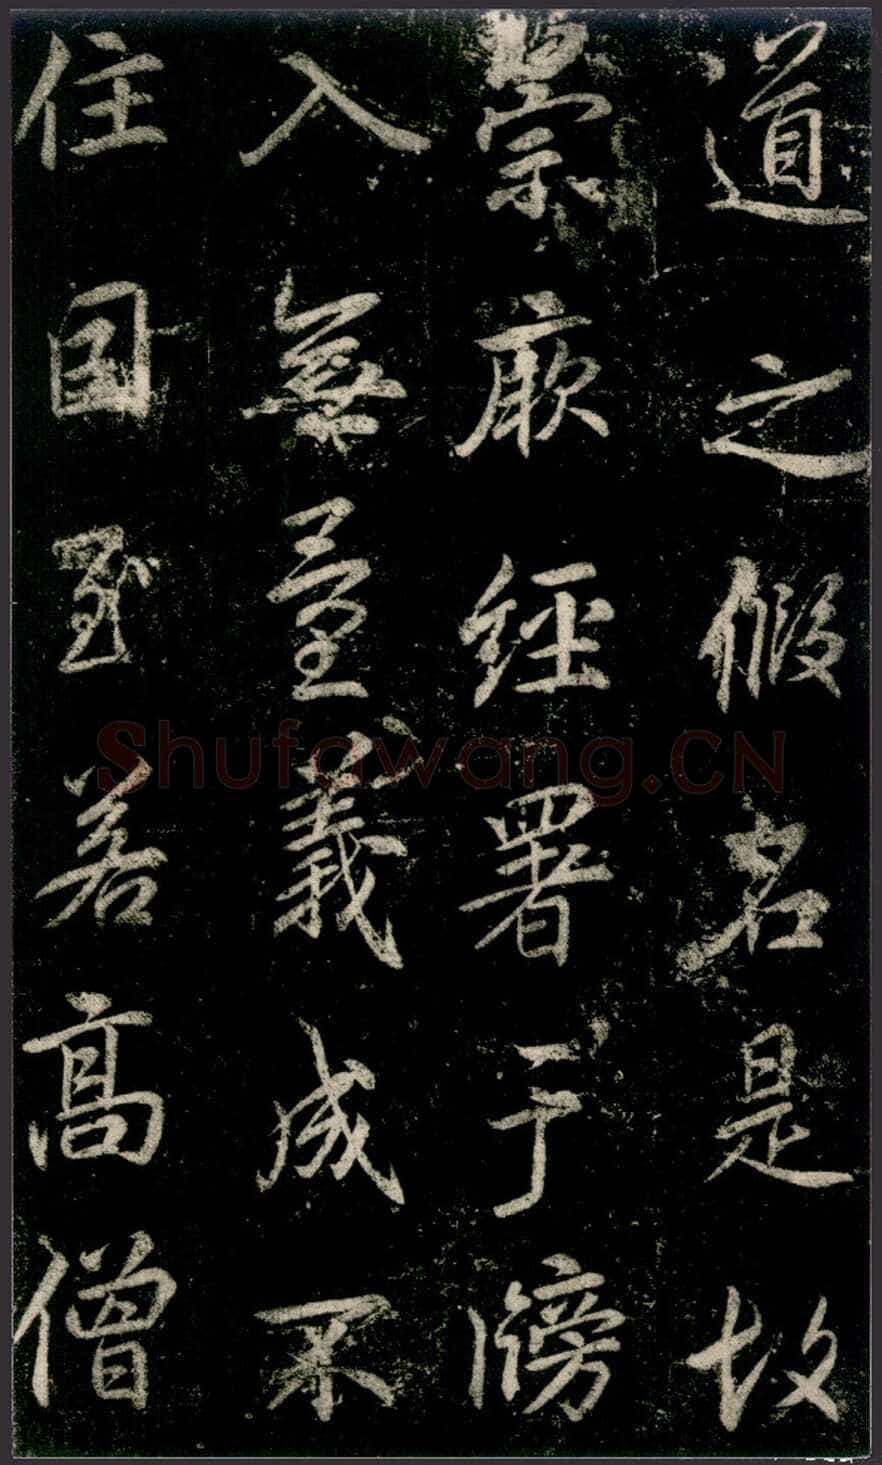 道之假名是故
崇厥經署于牓
入無量義成不
住因至若高僧
Shufawang.CN